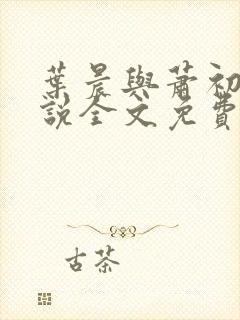 葉晨與蕭初
說全文免費
古茶